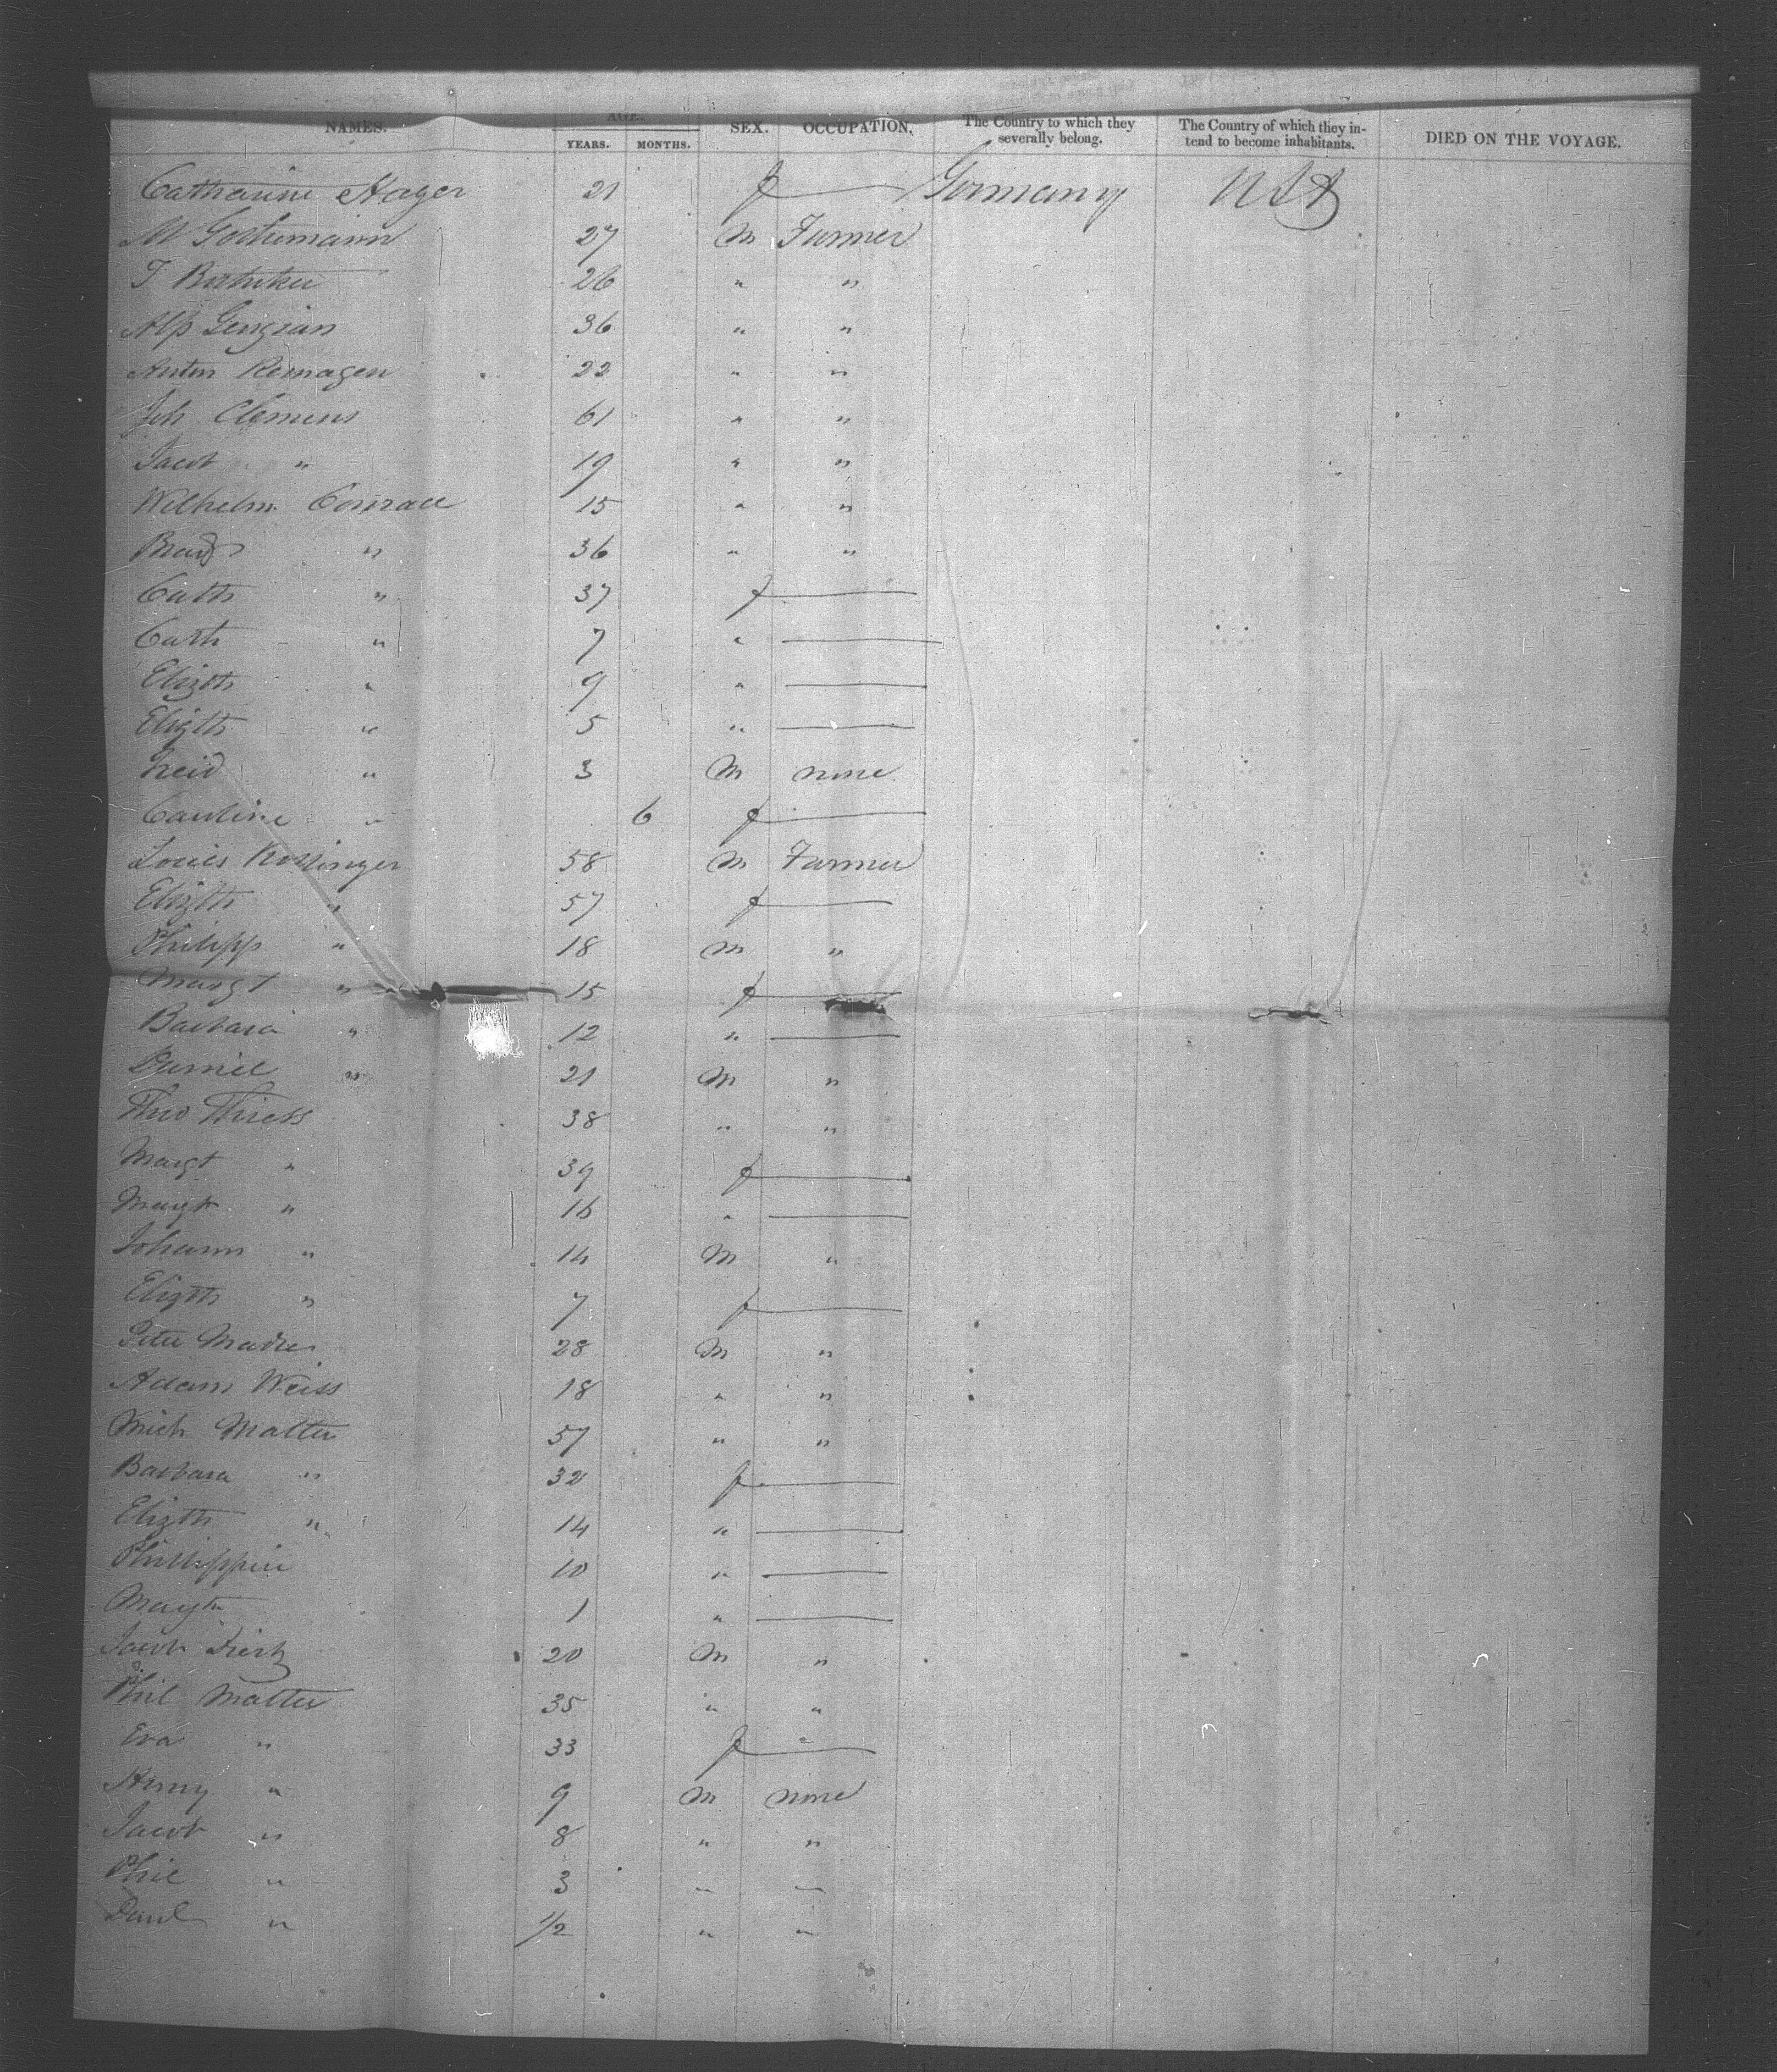 NAMES. AGE. SEX. OCCUPATION. The Country to which they severally belong. The Country of which they intend to become inhabitants. DIED ON THE VOYAGE.
YEARS. MONTHS.
Catharine Hager 21 f — Germany USA
M 27 M Farmer
T 26 " "
Alp Genzian 36 " "
Anton Remagen 22 " "
Joh Clemens 61 " "
Jacob " 19 " "
Wilhelm Conrad 15 " "
" 36 " "
Cath " 37 f —
Cath " 7 " —
Elizth " 9 " —
Elizth " 5 " —
" 3 M none
Caroline " 6 f —
Louis 58 M Farmer
Elizth " 57 f —
Philipp " 18 M "
Margt " 15 f —
Barbara " 12 " —
Daniel " 21 M "
Theo 38 " "
Margt " 39 f —
Margt " 16 " —
Johann " 14 M "
Elizth " 7 f —
Peter Mader 28 M "
Adam Weiss 18 " "
Mich Matter 57 " "
Barbara " 32 f —
Elizth " 14 " —
Phillippin 10 " —
Margth 1 " —
Jacob 20 M "
Phil Matter 35 " "
Eva " 33 f —
Henry " 9 M none
Jacob " 8 " "
Phil " 3 " "
" 1/2 " "